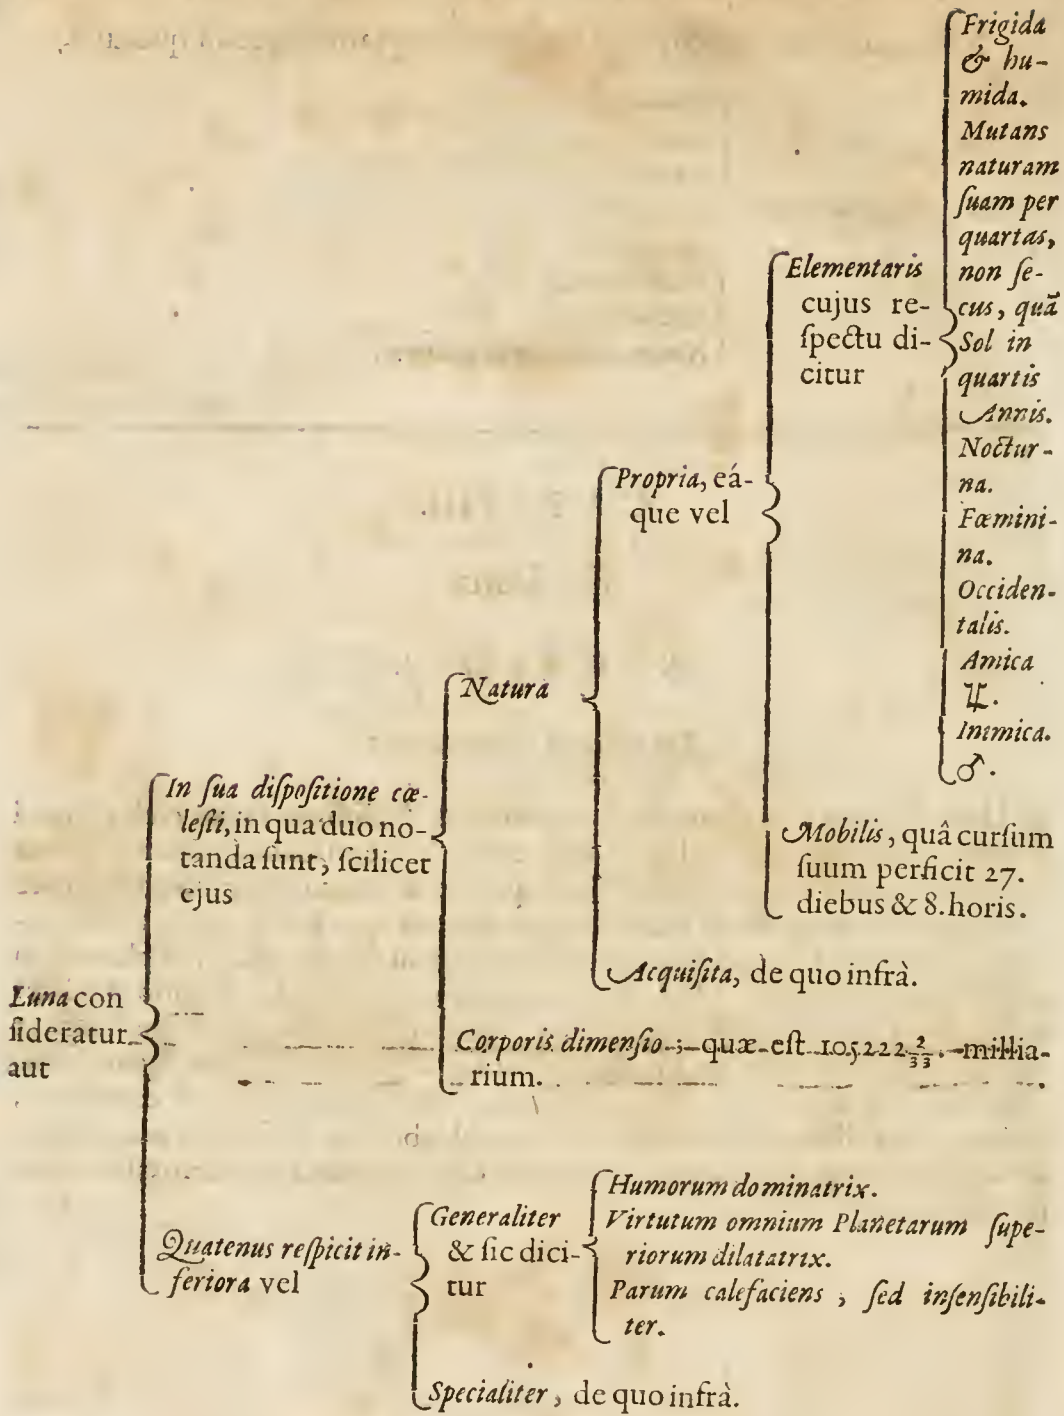 Luna con
ſideratur
aut
In ſua diſpoſitione cœ-
leſti, in qua duo no-
tanda ſunt, ſcilicet
ejus
Natura
Propria, eá-
que vel
Elementaris
cujus re-
ſpectu di-
citur
Frigida
& hu-
mida.
Mutans
naturam
ſuam per
quartas,
non ſe-
cus, quã
Sol in
quartis
Annis.
Noctur-
na.
Fœmini-
na.
Occiden-
talis.
Amica
♃.
Inimica.
♂.
Mobilis, quâ curſum
ſuum perficit 27.
diebus & 8. horis.
Acquiſita, de quo infrà.
Corporis dimenſio; quæ eſt 105222 2/33. millia-
rium.
Quatenus reſpicit in-
feriora vel
Generaliter
& ſic dici-
tur
Humorum dominatrix.
Virtutum omnium Planetarum ſupe-
riorum dilatatrix.
Parum calefaciens, ſed inſenſibili-
ter.
Specialiter, de quo infrà.